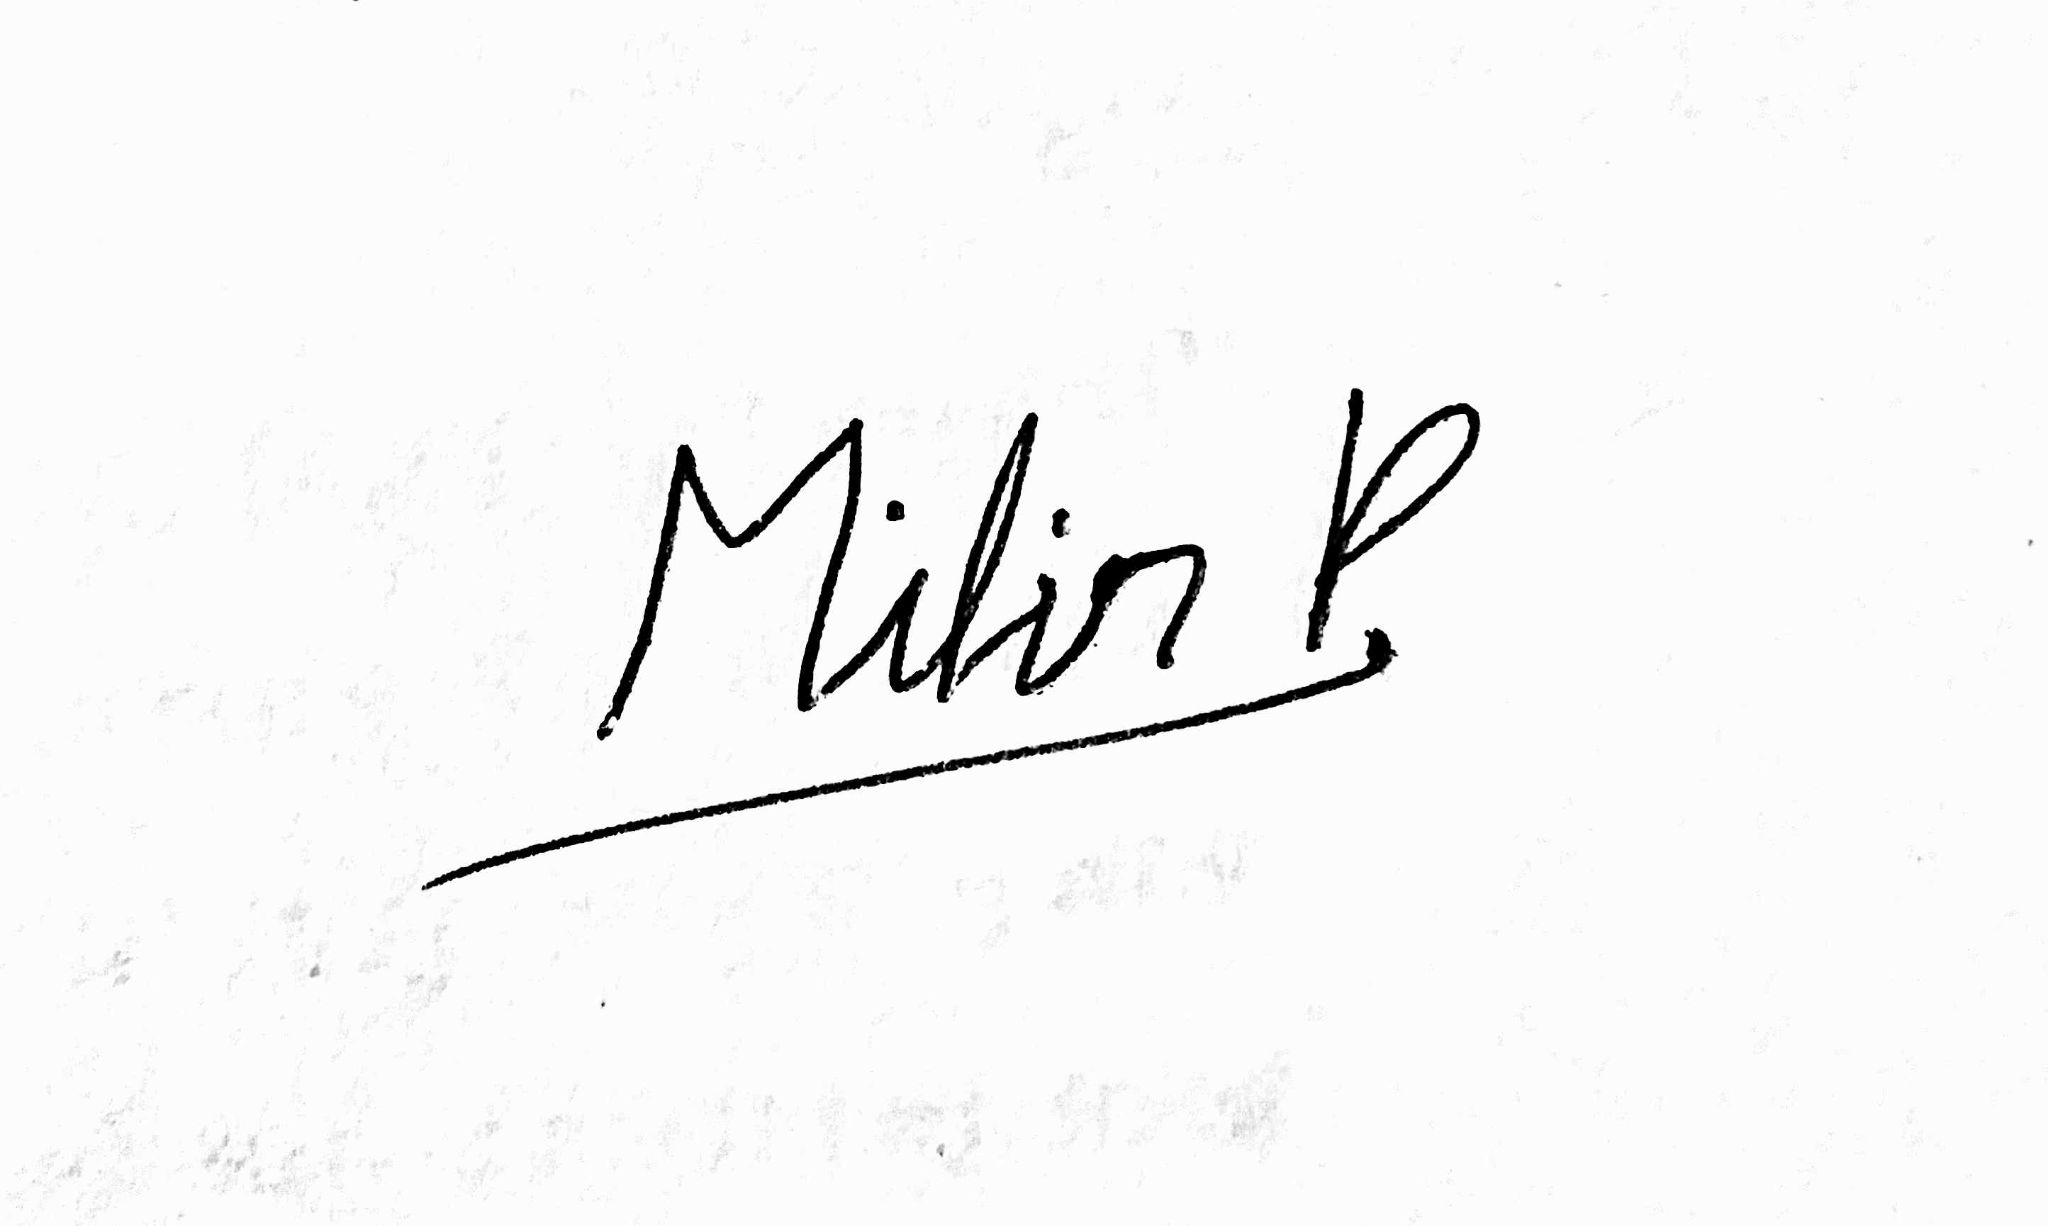 Milin P.